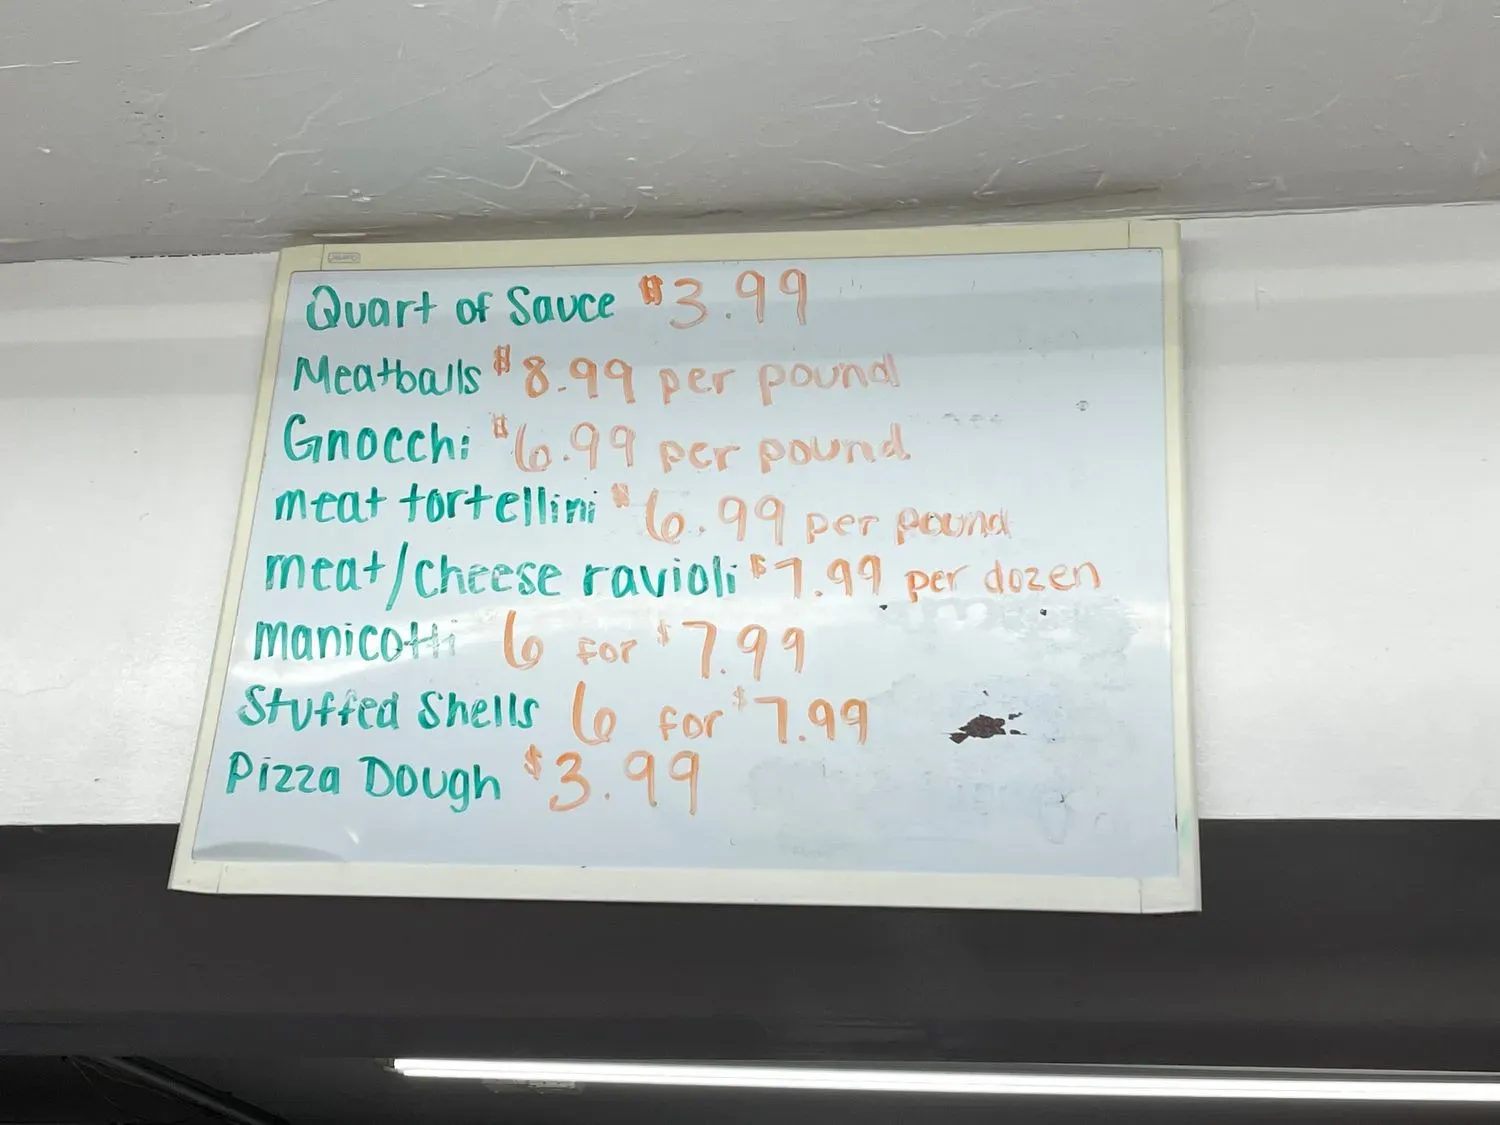 Quart of Sauce $3.99
Meatballs $8.99 per pound
Gnocchi $6.99 per pound
meat tortellini $6.99 per pound
meat/cheese ravioli $7.99 per dozen
Manicotti 6 for $7.99
Stuffed Shells 6 for $7.99
Pizza Dough $3.99